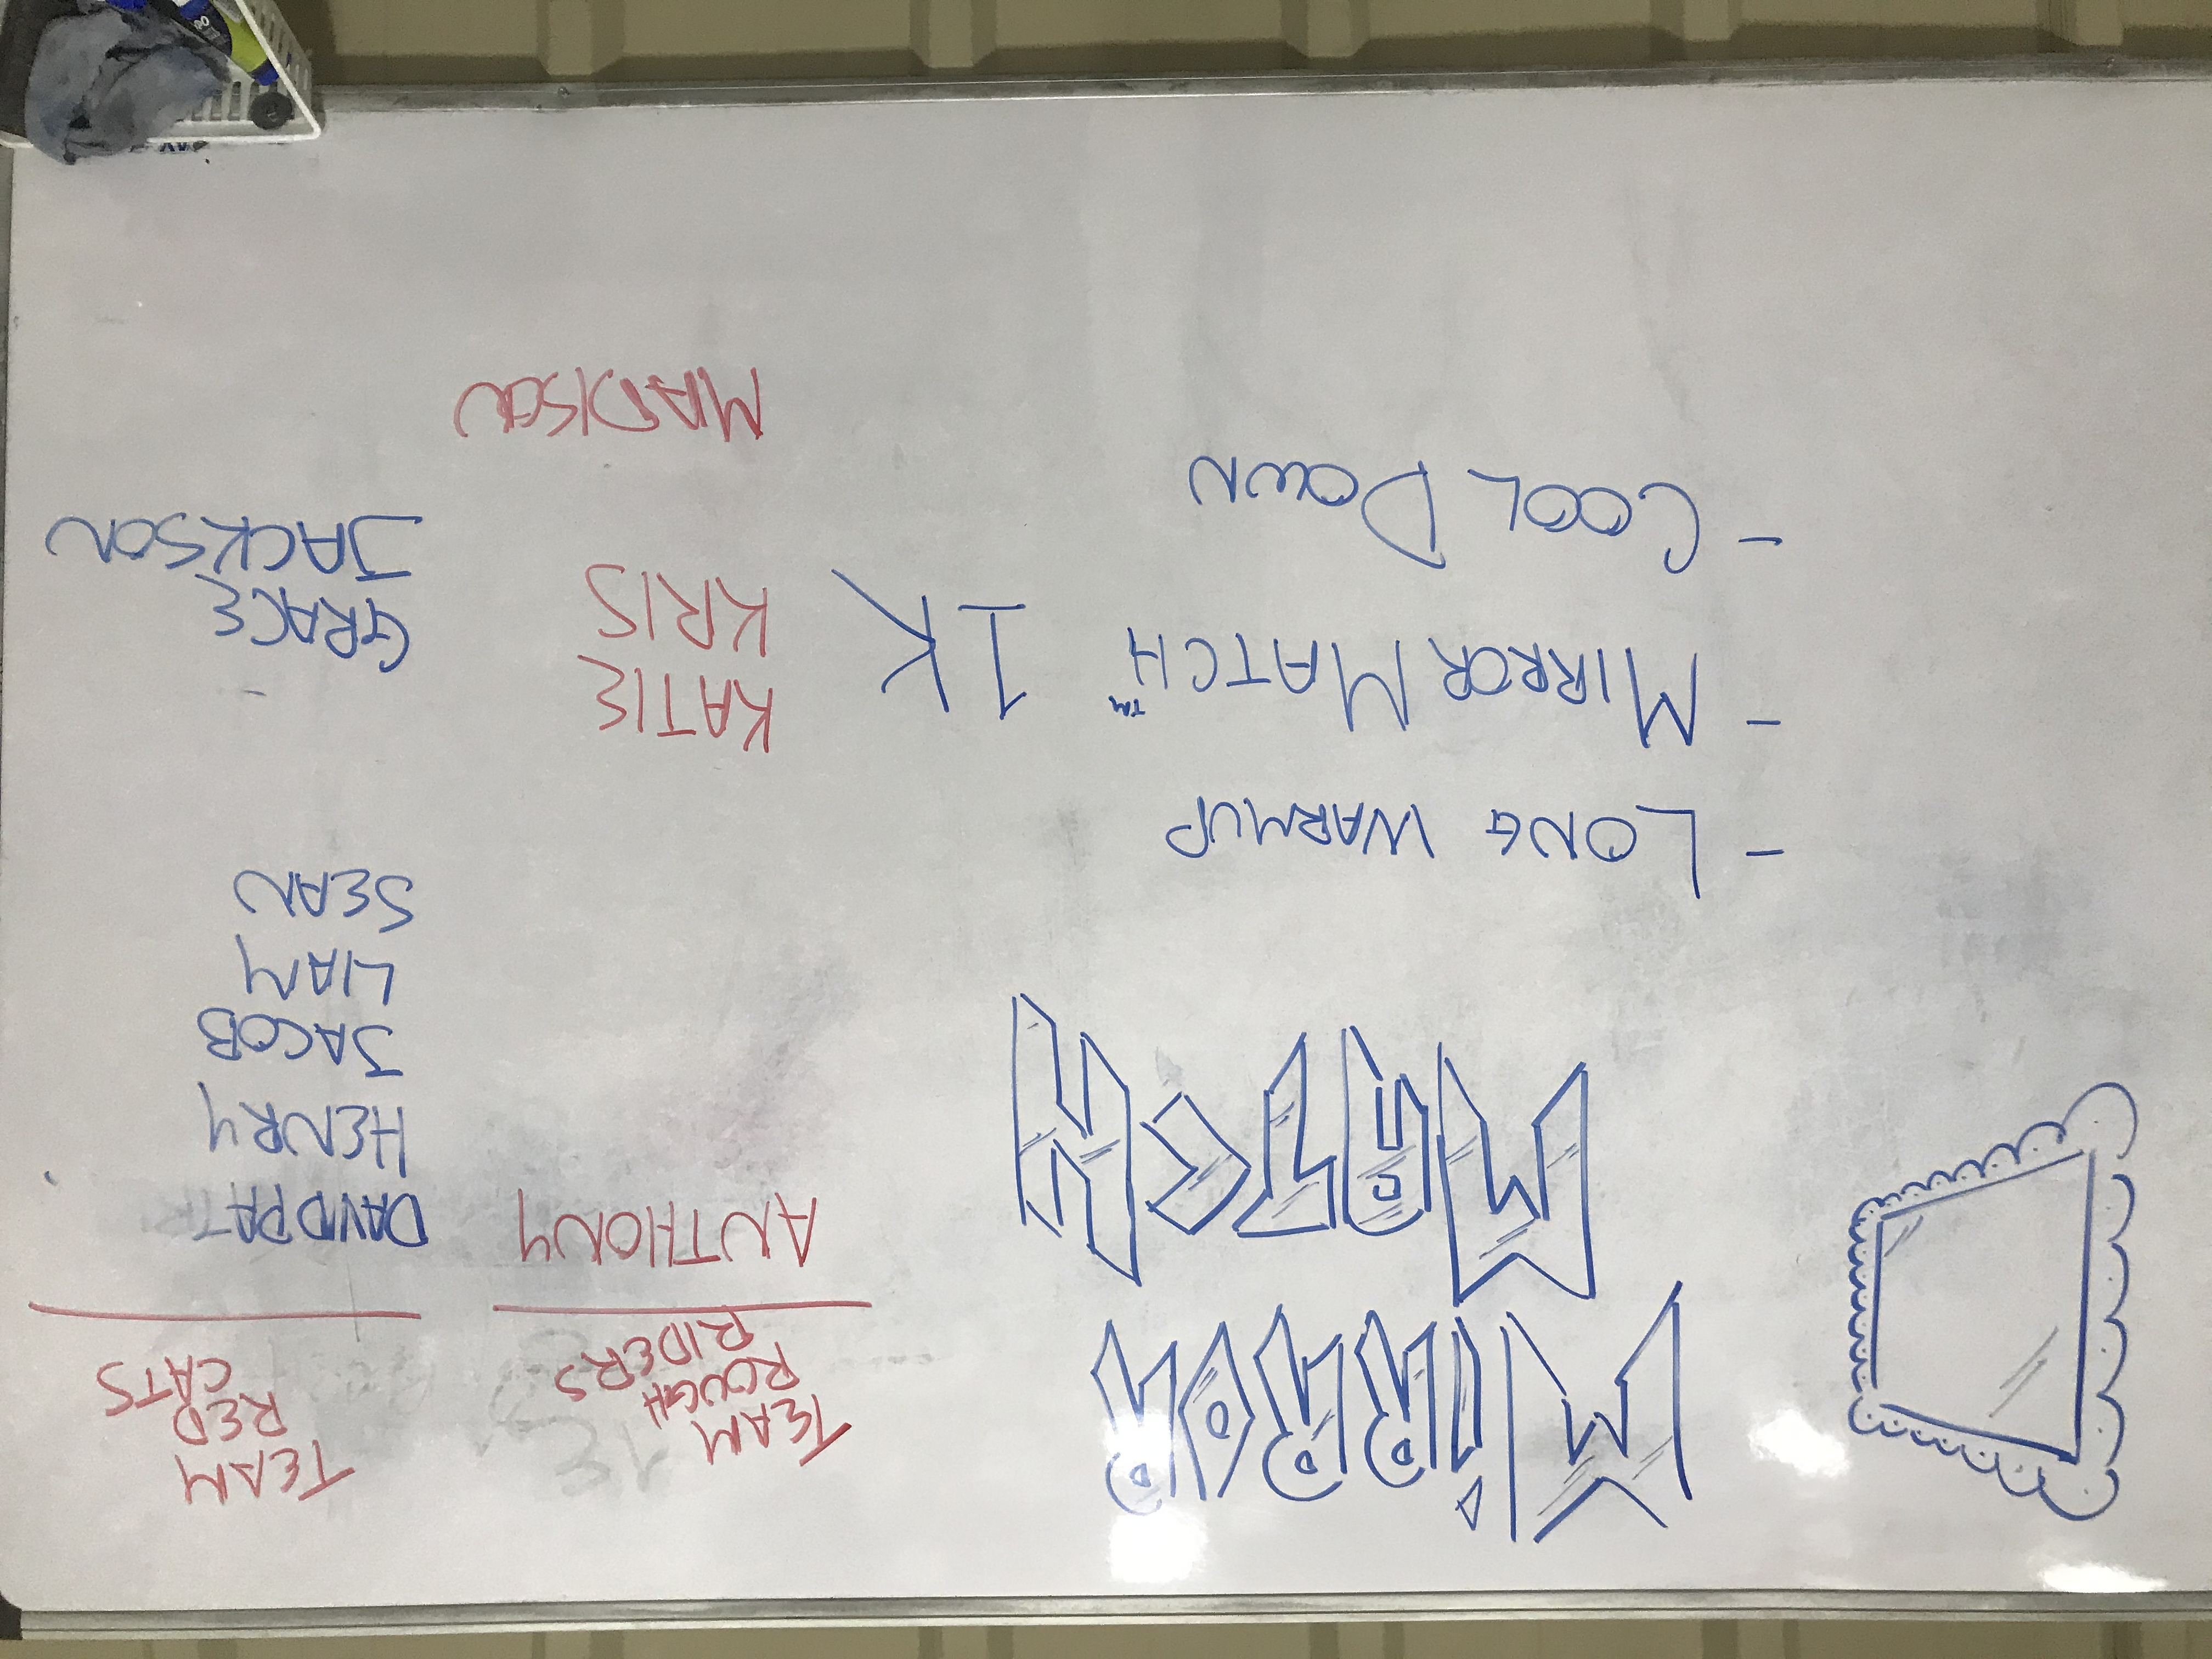 MIRROR
MATCH
- LONG WARMUP
- MIRROR MATCH™ 1K
- COOL DOWN
TEAM
ROUGH
RIDERS
ANTHONY
KATIE
KRIS
MADISON
TEAM
RED
CATS
DAVID PAT
HENRY
JACOB
LIAM
SEAN
GRACE
JACKSON